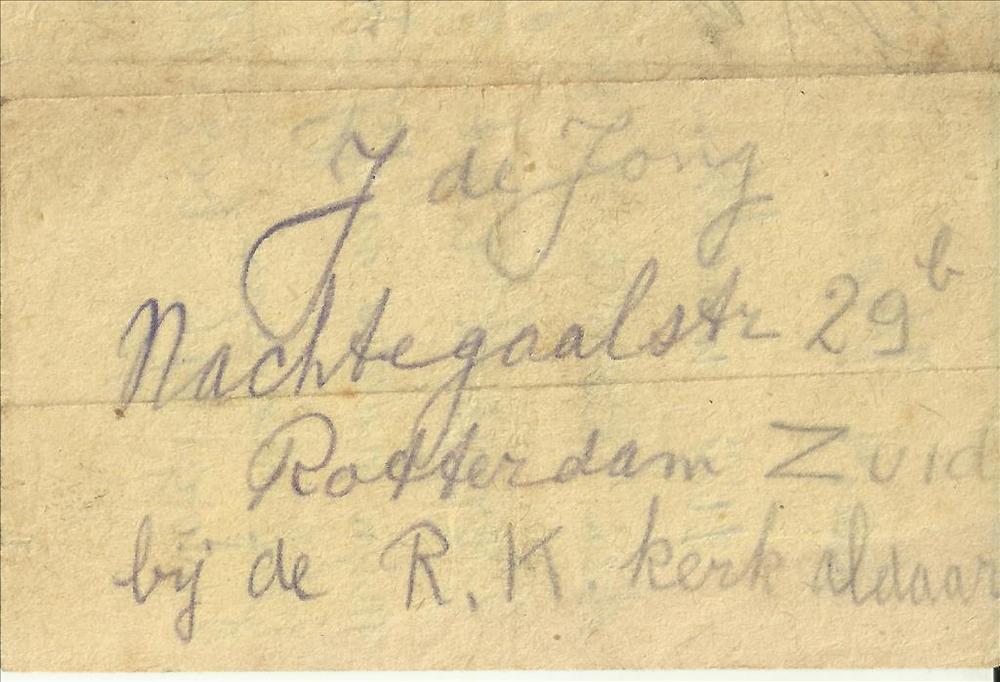 J de Jong
Nachtegaalstr 29b
Rotterdam Zuid
bij de R.K. kerk aldaar